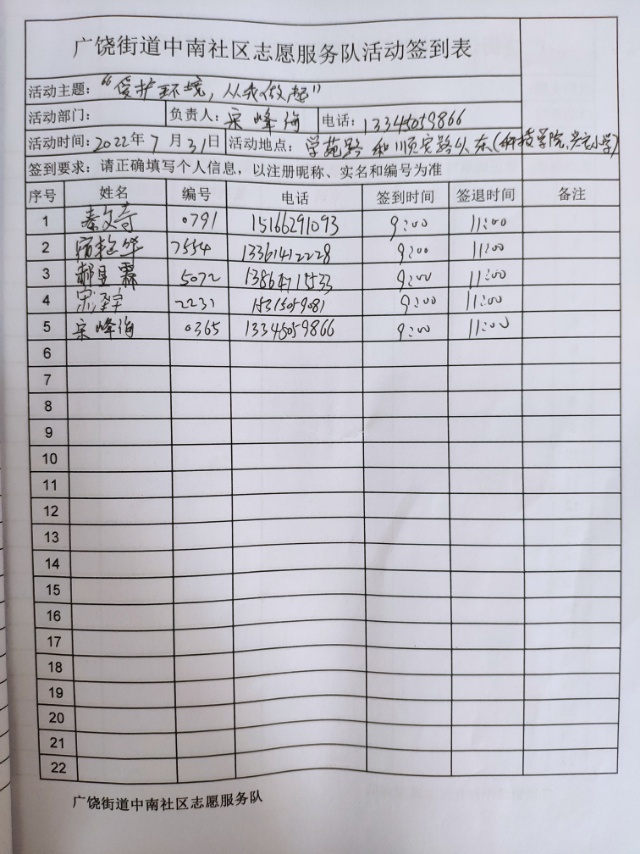 广饶街道中南社区志愿服务队活动签到表
活动主题：“爱护环境，从我做起”
活动部门： 负责人：宋峰海 电话：13345059866
活动时间：2022年7月31日 活动地点：学苑路和顺安路以东(科技学院、
签到要求：请正确填写个人信息，以注册昵称、实名和编号为准
序号 姓名 编号 电话 签到时间 签退时间 备注
1 秦文奇 0791 15166291093 9:00 11:00
2 7554 13361412228 9:00 11:00
3 郝昱霖 5072 13864711533 9:00 11:00
4 2231 9:00 11:00
5 宋峰海 0365 13345059866 9:00 11:00
6
7
8
9
10
11
12
13
14
15
16
17
18
19
20
21
22
广饶街道中南社区志愿服务队